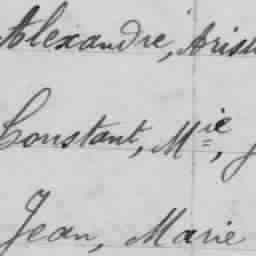 Alexandre, Arist
Constant, Mie, J
Jean, Marie